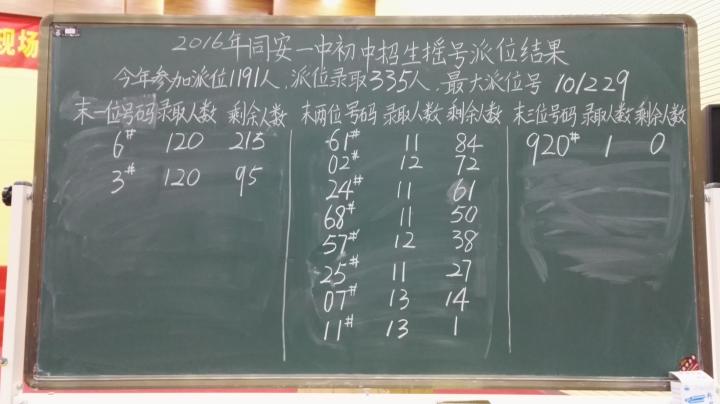 现场
2016年同安一中初中招生摇号派位结果
今年参加派位1191人,派位录取335人.最大派位号 101229
末一位号码 录取人数 剩余人数 末两位号码 录取人数 剩余人数 末三位号码 录取人数 剩余人数
6# 120 215 61# 11 84 920# 1 0
3# 120 95 02# 12 72
24# 11 61
68# 11 50
57# 12 38
25# 11 27
07# 13 14
11# 13 1